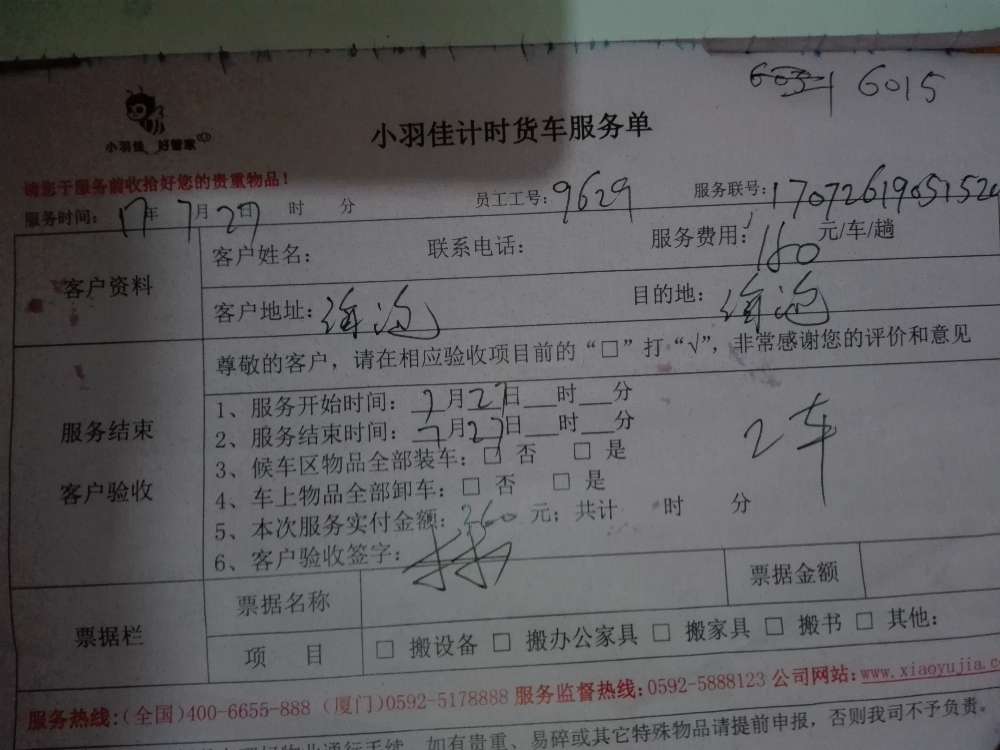 6015
小羽佳 好管家
小羽佳计时货车服务单
请您于服务前收拾好您的贵重物品！
服务时间： 17年 7月 27日 时 分 员工工号：9629 服务联号：1707261905152
客户资料
客户姓名： 联系电话： 服务费用：160 元/车/趟
客户地址：海沧 目的地：海沧
尊敬的客户，请在相应验收项目前的“□”打“√”，非常感谢您的评价和意见
服务结束
客户验收
1、服务开始时间：7月27日___时___分
2、服务结束时间：7月27日___时___分
3、候车区物品全部装车：□ 否 □ 是
2车
4、车上物品全部卸车：□ 否 □ 是
5、本次服务实付金额：360 元；共计 时 分
6、客户验收签字：
票据栏
票据名称 票据金额
项 目 □ 搬设备 □ 搬办公家具 □ 搬家具 □ 搬书 □ 其他：
服务热线：(全国)400-6655-888 (厦门)0592-5178888 服务监督热线：0592-5888123 公司网站：www.xiaoyujia.c
如有贵重、易碎或其它特殊物品请提前申报，否则我司不予负责。